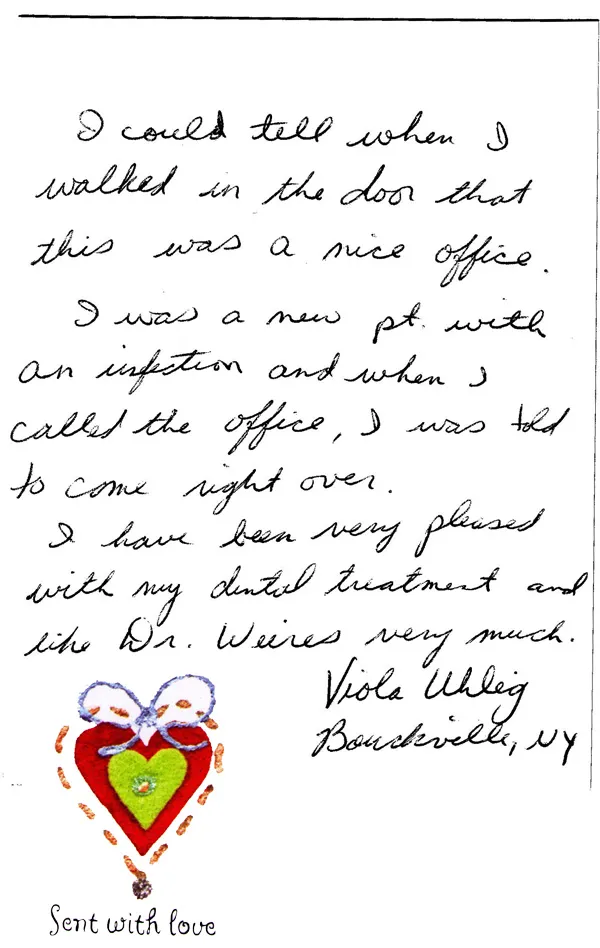 I could tell when I
walked in the door that
this was a nice office.
I was a new pt. with
an infection and when I
called the office, I was told
to come right over.
I have been very pleased
with my dental treatment and
like Dr. Weires very much.
Viola Uhlig
Bouckville, NY
Sent with love